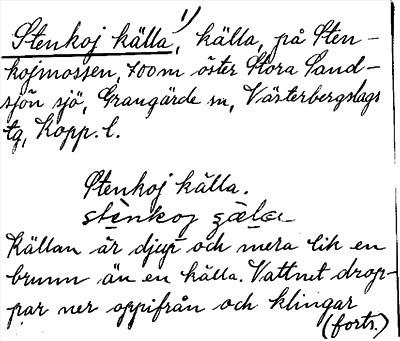 Stenkoj källa¹⁾, källa, på Sten-
kojmossen, 700 m öster Stora Sand-
sjön sjö, Grangärde sn, Västerbergslags
tg, Kopp. l.
Stenkoj källa.
stènkoj çæla
Källan är djup och mera lik en
brunn än en källa. Vattnet drop-
par ner oppifrån och klingar
(forts.)